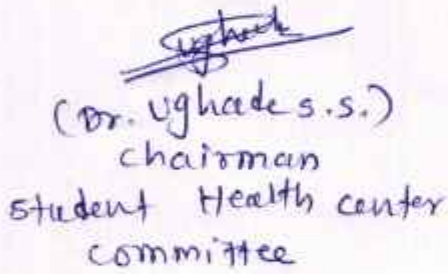 Ughade
(Dr. Ughade s.s.)
chairman
student Health center
committee